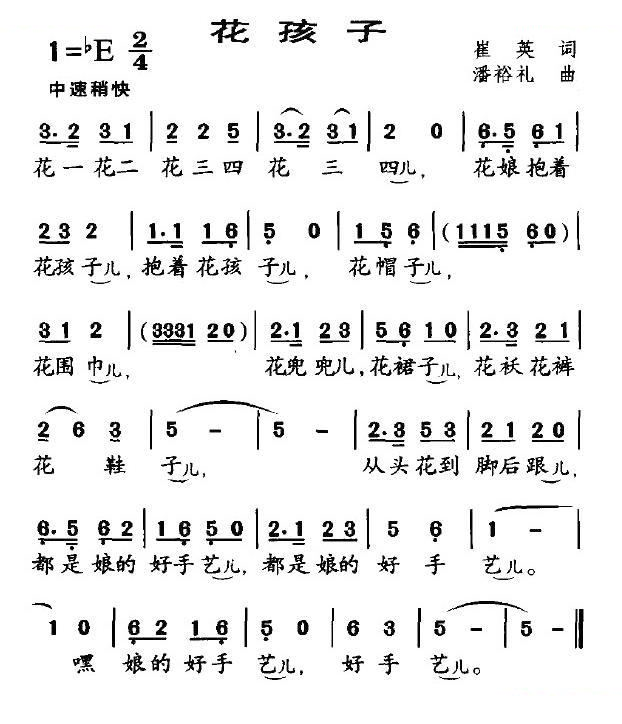 花孩子
1=♭E 2/4
崔英 词
中速稍快
潘裕礼 曲
3.2 31 | 2 2 5 | 3.2 31 | 2 0 | 6.5 61 |
花一花二 花三四 花 三 四儿， 花娘抱着
23 2 | 1.1 16 | 5 0 | 1 5 6 | (1115 60) |
花孩子儿，抱着花孩 子儿， 花帽子儿，
31 2 | (3331 20) | 2.1 23 | 56 10 | 2.3 21 |
花围巾儿， 花兜兜儿，花裙子儿，花袄花裤
2 6 3 | 5 - | 5 - | 2.3 53 | 21 20 |
花 鞋 子儿， 从头花到 脚后跟儿，
6.5 62 | 16 50 | 2.1 23 | 5 6 | 1 - |
都是娘的 好手艺儿，都是娘的 好 手 艺儿。
1 0 | 62 16 | 5 0 | 6 3 | 5 - | 5 - ‖
嘿 娘的好手 艺儿， 好手 艺儿。